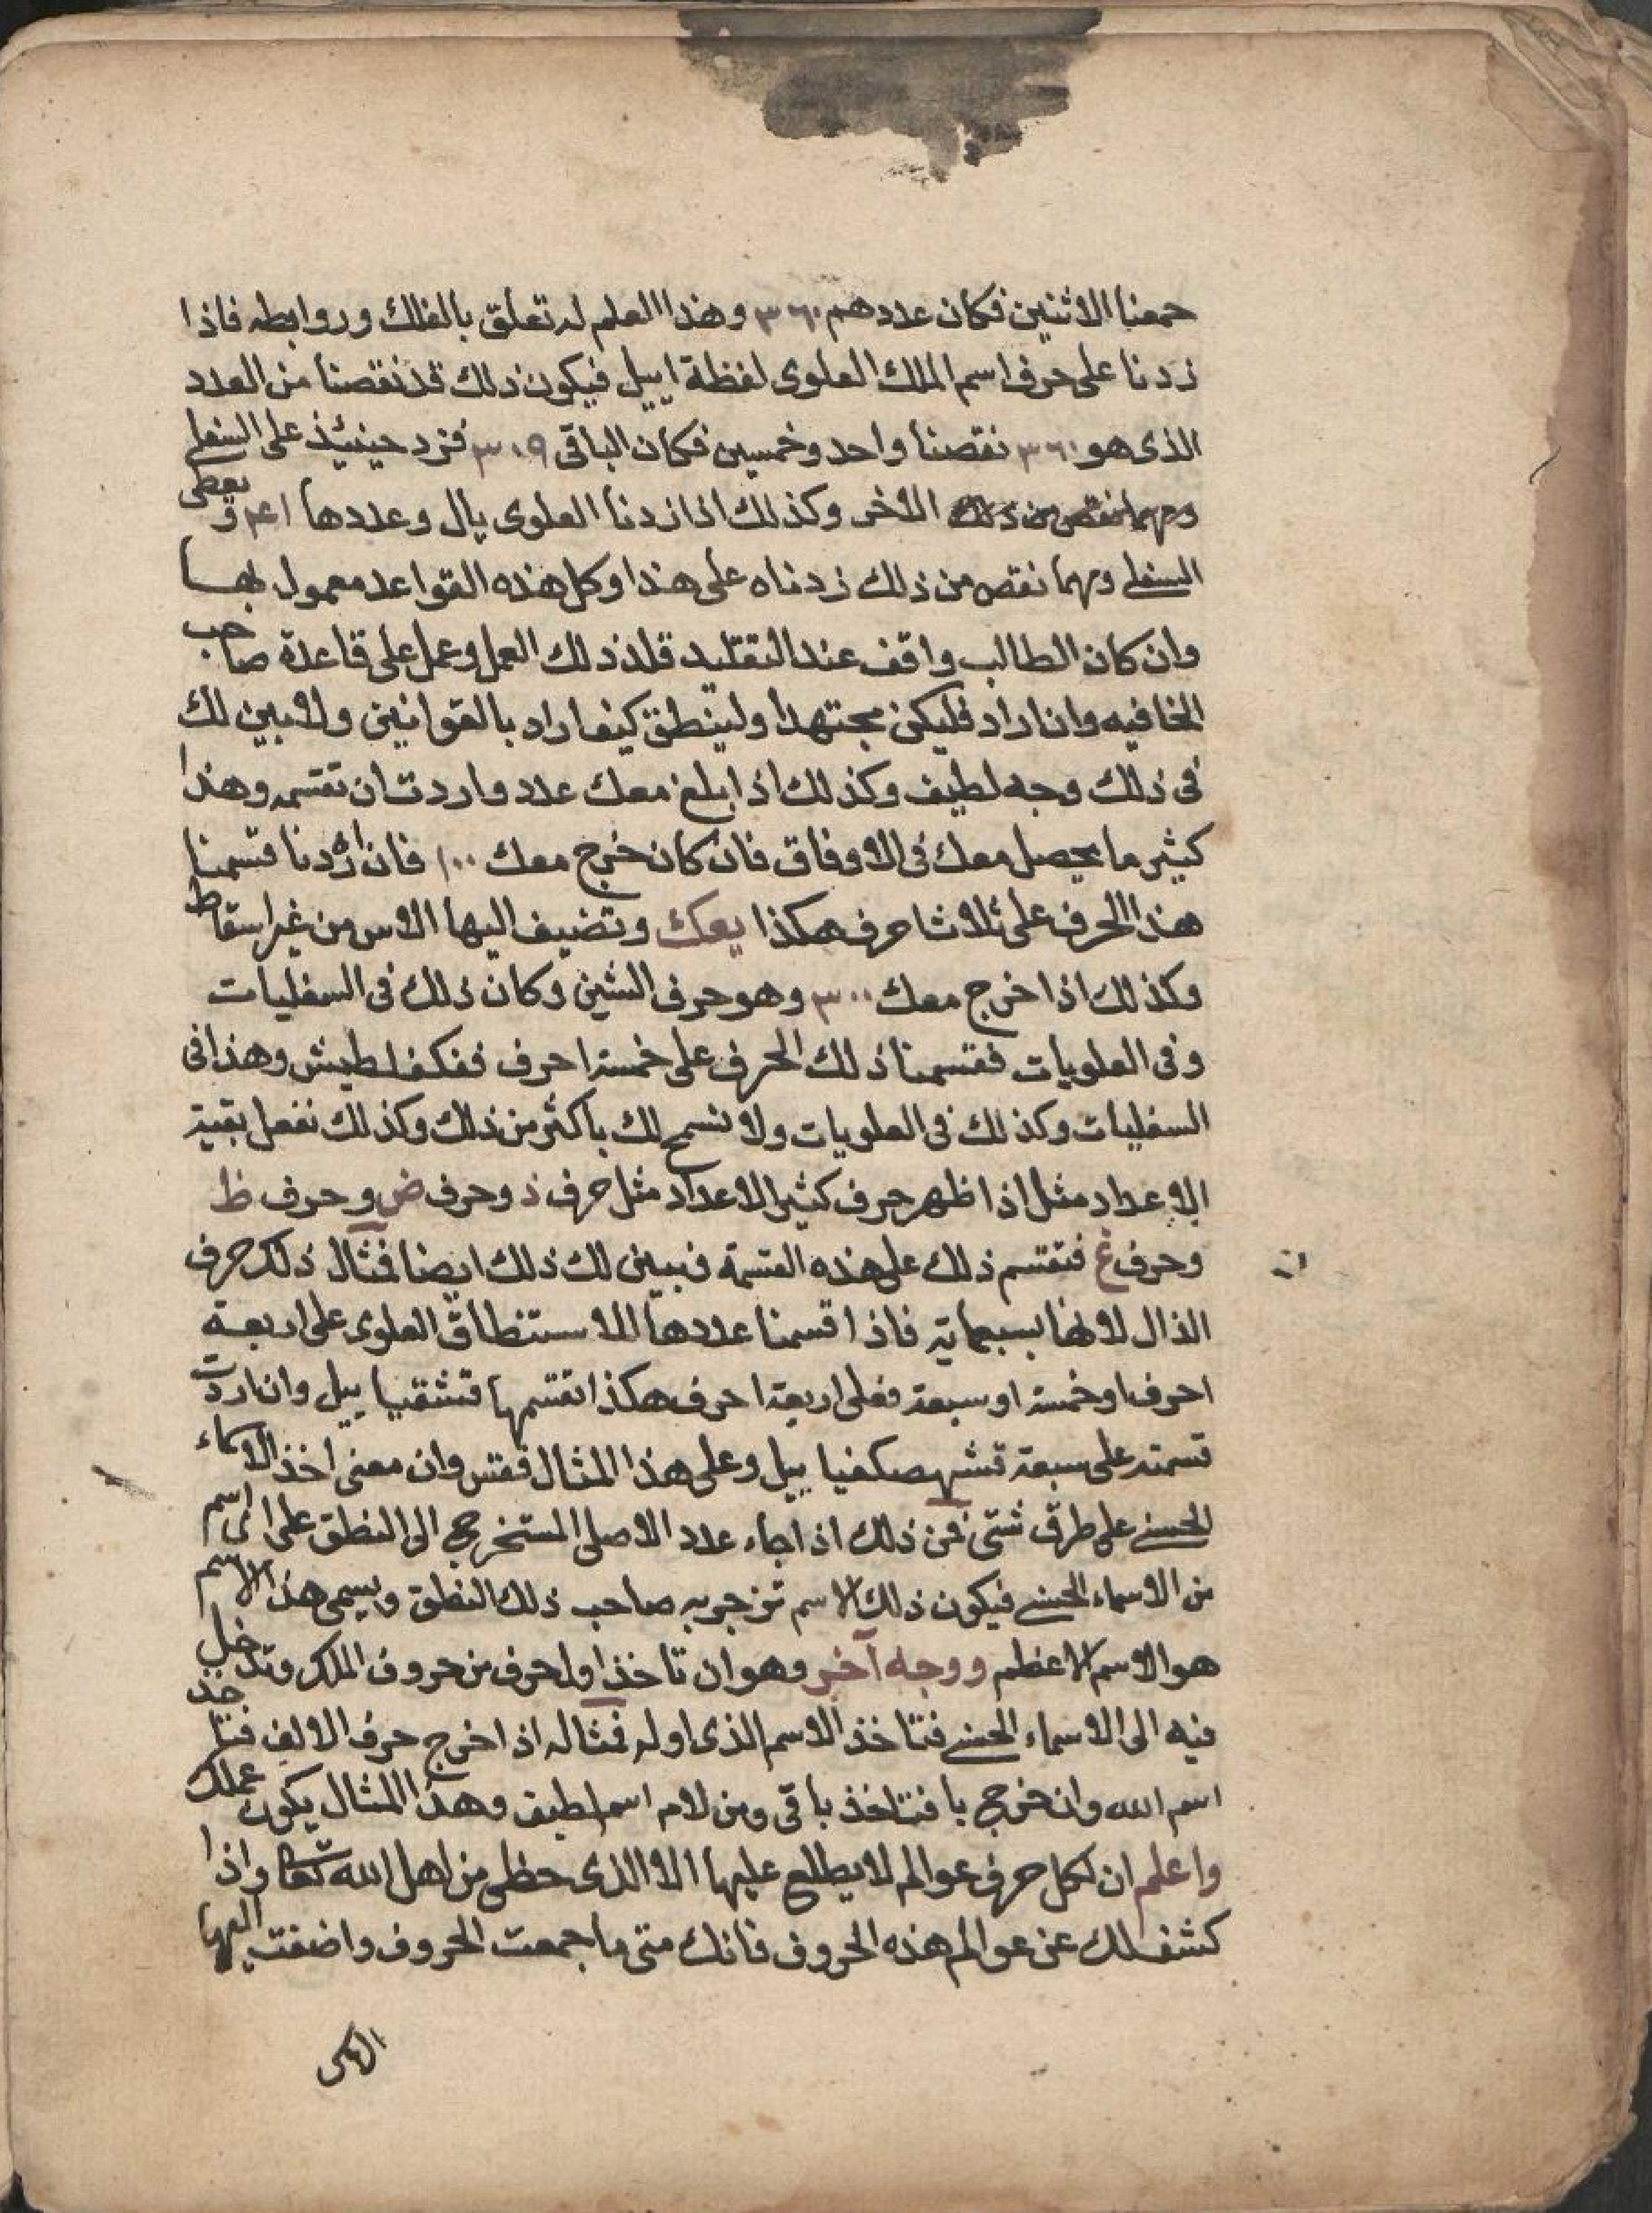 جمعنا الاثنين فكان عددهم ٣٦٠ وهذا العلم له تعلق بالفلك وروابطه فاذا
زدنا على حرف اسم الملك العلوى لفظة اييل فيكون ذلك قد نقصنا من العدد
الذى هو ٣٦٠ نقصنا واحد وخمسين فكان الباقى ٣٠٩ فنزد حينيئذ على السفلى
ومهما نقص من ذلك الاخر وكذلك اذا زدنا العلوى يال وعددها ٤١ م ونعطى
السفلى ومهما نقص من ذلك زدناه على هذا وكل هذه القواعد معمول بها
وان كان الطالب واقف عند التقليد قلد ذلك العمل وعمل على قاعدة صاحب
الخافيه وان اراد فليكن مجتهدا ولينطق كيف اراد بالقوانين ولابين لك
فى ذلك وجه لطيف وكذلك اذا بلغ معك عدد واردت ان تقسمه وهذا
كثير ما يحصل معك فى الاوفاق فان كان خرج معك ١٠٠ فان اردنا قسمنا
هذا الحرف على ثلاث احرف هكذا يعك وتضيف اليها الاس من غير اسقاط
وكذلك اذا خرج معك ٣٠٠ وهو حرف الشين وكان ذلك فى السفليات
وفى العلويات فقسمنا ذلك الحرف على خمسة احرف ففكفلطيش وهذا فى
السفليات وكذلك فى العلويات ولا نسمح لك باكثر من ذلك وكذلك نفعل بقية
الاعداد مثل اذا ظهر حرف كثير الاعداد مثل حرف ذ وحرف ض وحرف ظ
وحرف غ فتقسم ذلك على هذه القسمة فبين لك ذلك ايضا فمثال ذلك حرف
ان
الذال لانها بسبعماية فاذا قسمنا عددها للاستنطاق العلوى على اربعة
احرف او خمسة او سبعة فعلى اربعة احرف هكذا تقسمها قتشقييا ييل وان اردت
قسمته على سبعة قتشهصكفيا ييل وعلى هذا المثال فقس وان معنى اخذ الاسماء
الحسنى على طرق شتى فمن ذلك اذا جاء عدد الاصلى المستخرج الى النطق على اى اسم
من الاسماء الحسنى فيكون ذلك الاسم تزجر به صاحب ذلك النطق ويسمى هذا الاسم
هو الاسم الاعظم ووجه آخر وهو ان تاخذ اول حرف من حروف الملك وتدخل
فيه الى الاسماء الحسنى فتاخذ الاسم الذى اوله فمثاله اذا خرج حرف الالف فتاخذ
اسم الله وان خرج با فتاخذ باقى ومن لام اسم لطيف وهذا المثال يكون عملك
واعلم ان لكل حرف عوالم لا يطلع عليها الا الذى حظى من اهل الله تعالى واذا
كشف لك عن عوالم هذه الحروف فانك متى ما جمعت الحروف واضفت اليها